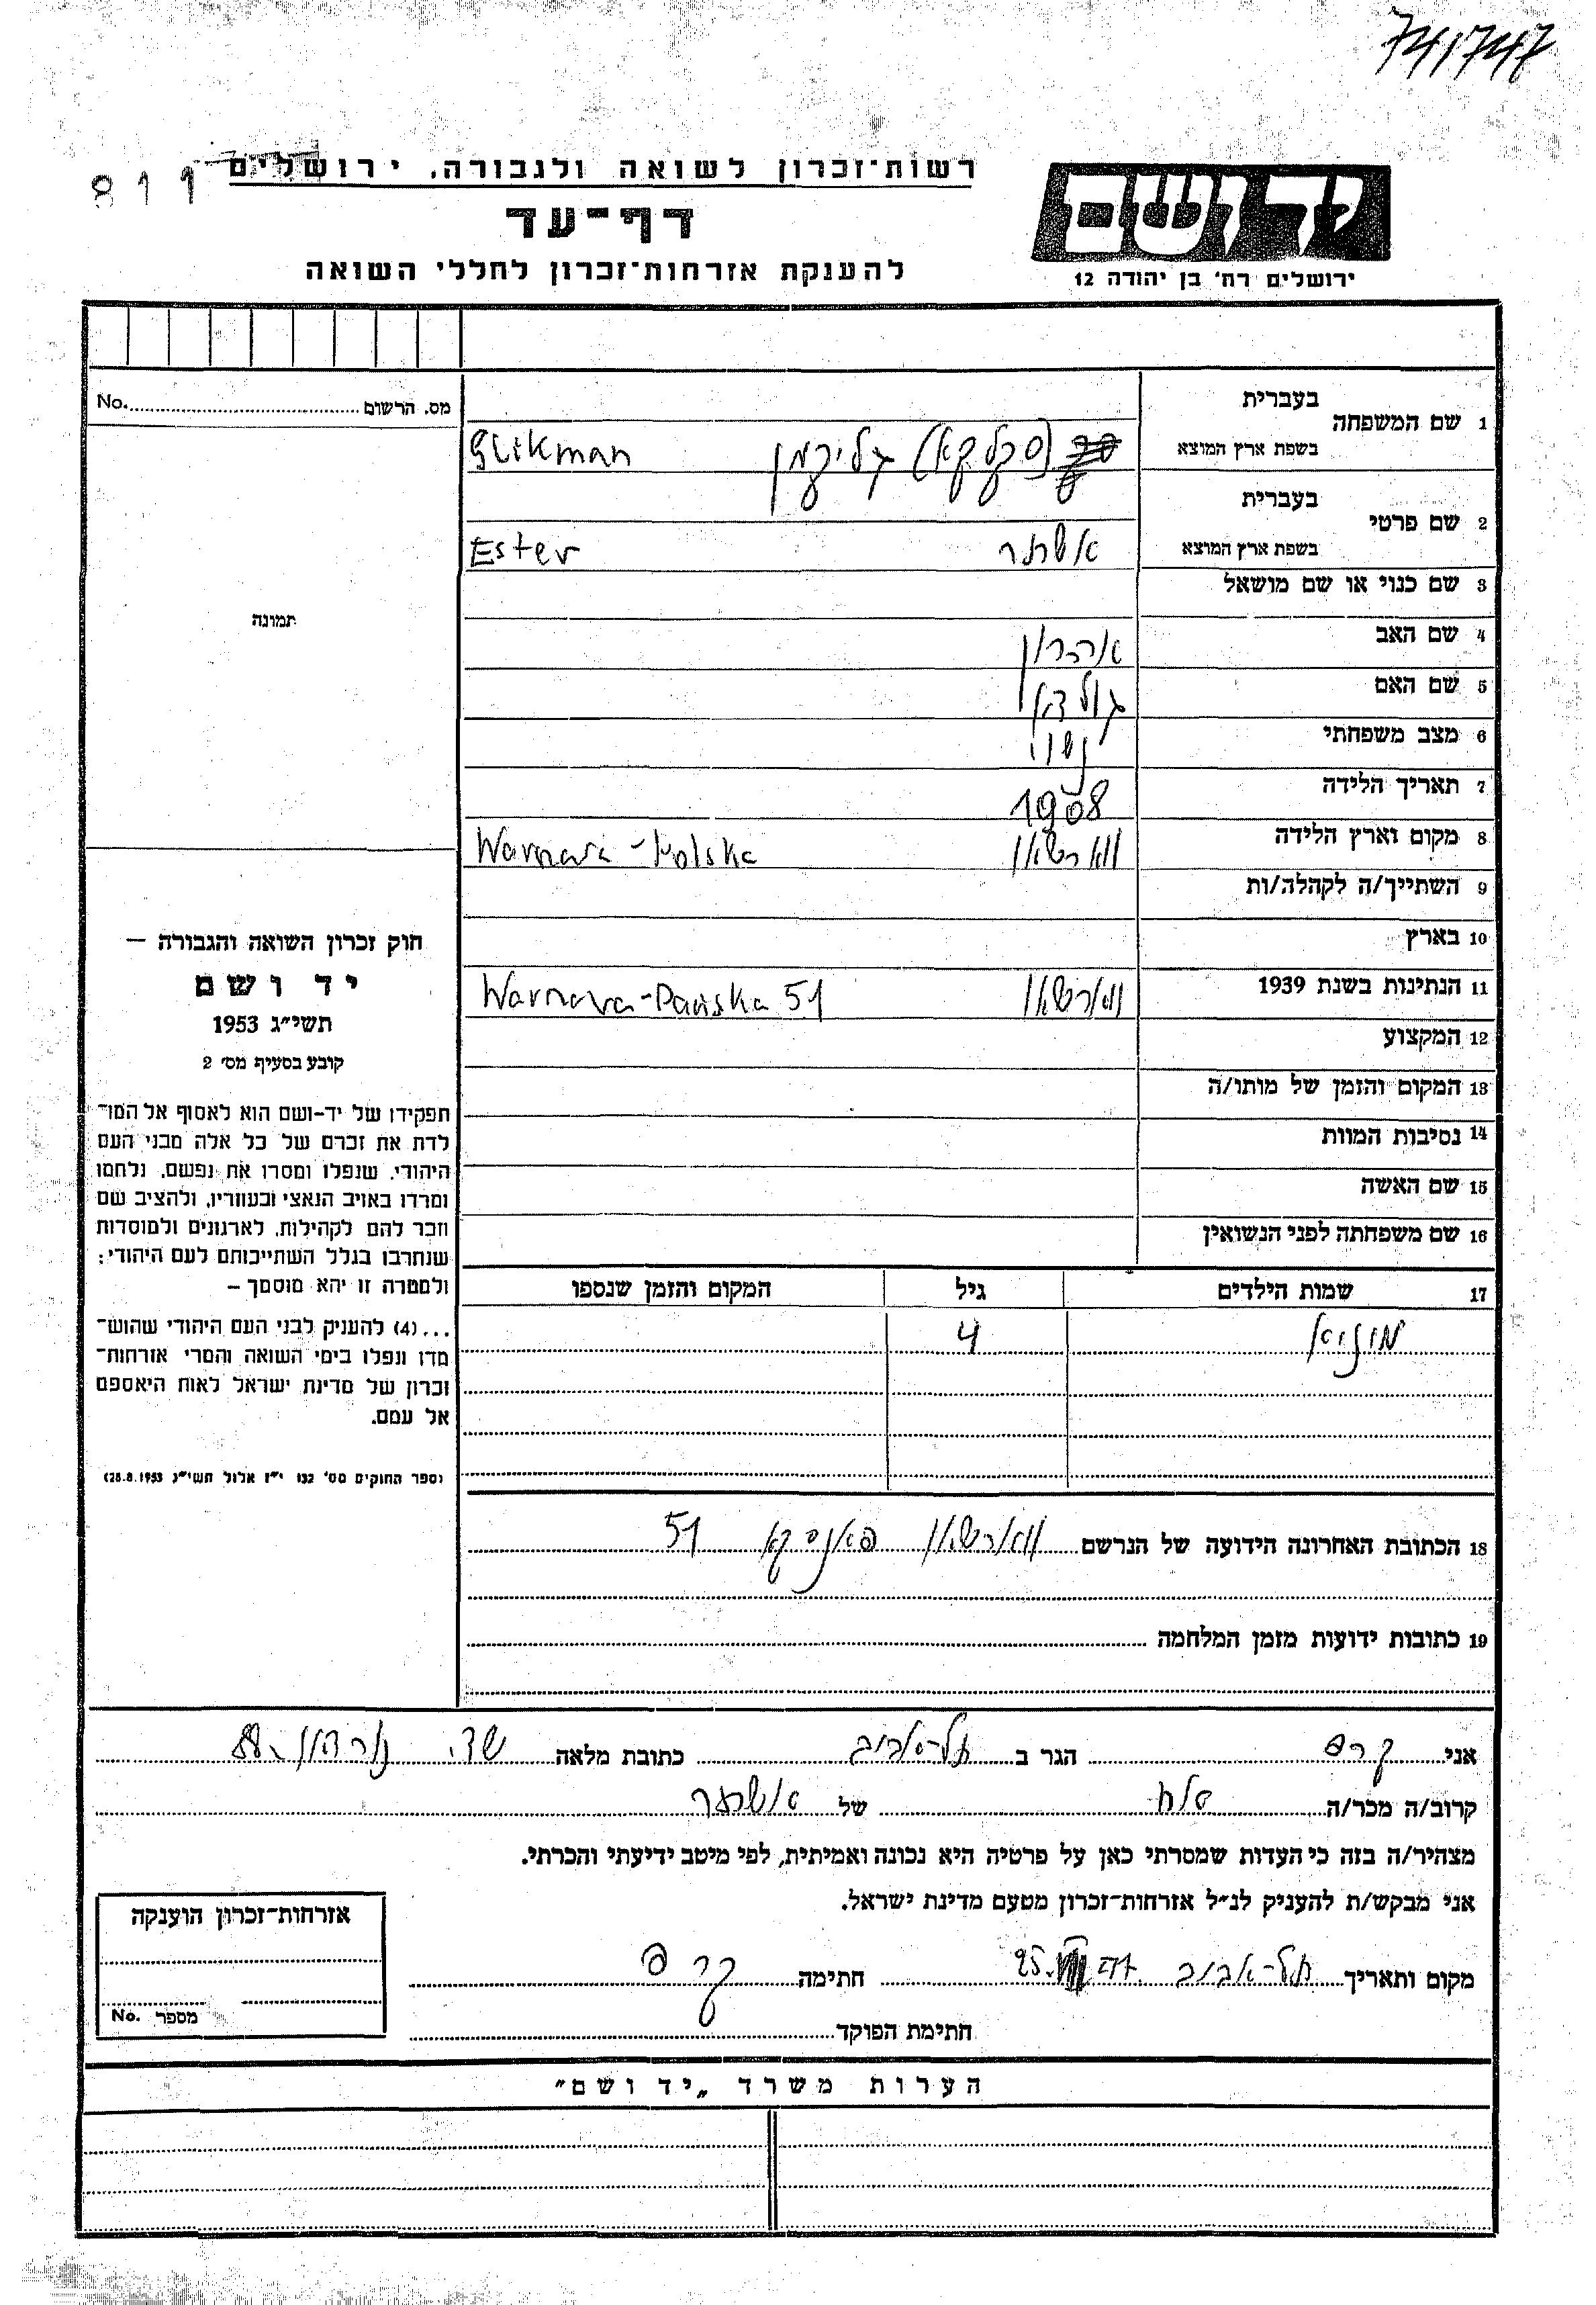 741747
רשות־זכרון לשואה ולגבורה, ירושלים
811
דף־עד
להענקת אזרחות־זכרון לחללי השואה
יד ושם
ירושלים רח' בן יהודה 12
מס. הרשום No.
תמונה
1 שם המשפחה
בעברית
בשפת ארץ המוצא
(סקלקא) גליקמן Glikman
2 שם פרטי
בעברית
בשפת ארץ המוצא
אסתר Ester
3 שם כנוי או שם מושאל
4 שם האב אהרון
5 שם האם גולדה
6 מצב משפחתי נשוי
7 תאריך הלידה 1908
8 מקום וארץ הלידה ווארשאו Warszawa - Polska
9 השתייך/ה לקהלה/ות
10 בארץ
11 הנתינות בשנת 1939 ווארשאו Warszawa - Pańska 51
12 המקצוע
13 המקום והזמן של מותו/ה
14 נסיבות המוות
15 שם האשה
16 שם משפחתה לפני הנשואין
17 שמות הילדים גיל המקום והזמן שנספו
4
18 הכתובת האחרונה הידועה של הנרשם ווארשאו פאנסקא 51
19 כתובות ידועות מזמן המלחמה
חוק זכרון השואה והגבורה –
יד ושם
תשי״ג 1953
קובע בסעיף מס' 2
תפקידו של יד-ושם הוא לאסוף אל המו־
לדת את זכרם של כל אלה מבני העם
היהודי, שנפלו ומסרו את נפשם, נלחמו
ומרדו באויב הנאצי ובעוזריו, ולהציב שם
וזכר להם לקהילות, לארגונים ולמוסדות
שנחרבו בגלל השתייכותם לעם היהודי;
ולמטרה זו יהא מוסמך –
...(4) להעניק לבני העם היהודי שהוש־
מדו ונפלו בימי השואה והמרי אזרחות־
זכרון של מדינת ישראל לאות היאספם
אל עמם.
(ספר החוקים מס' 132 י״ז אלול תשי״ג 28.8.1953)
אני קרפ הגר ב תל־אביב כתובת מלאה שד.
קרוב/ה מכר/ה של אסתר
מצהיר/ה בזה כי העדות שמסרתי כאן על פרטיה היא נכונה ואמיתית, לפי מיטב ידיעתי והכרתי.
אני מבקש/ת להעניק לנ״ל אזרחות־זכרון מטעם מדינת ישראל.
מקום ותאריך תל־אביב 25. חתימה קרפ
חתימת הפוקד
אזרחות־זכרון הוענקה
מספר No.
הערות משרד „יד ושם״